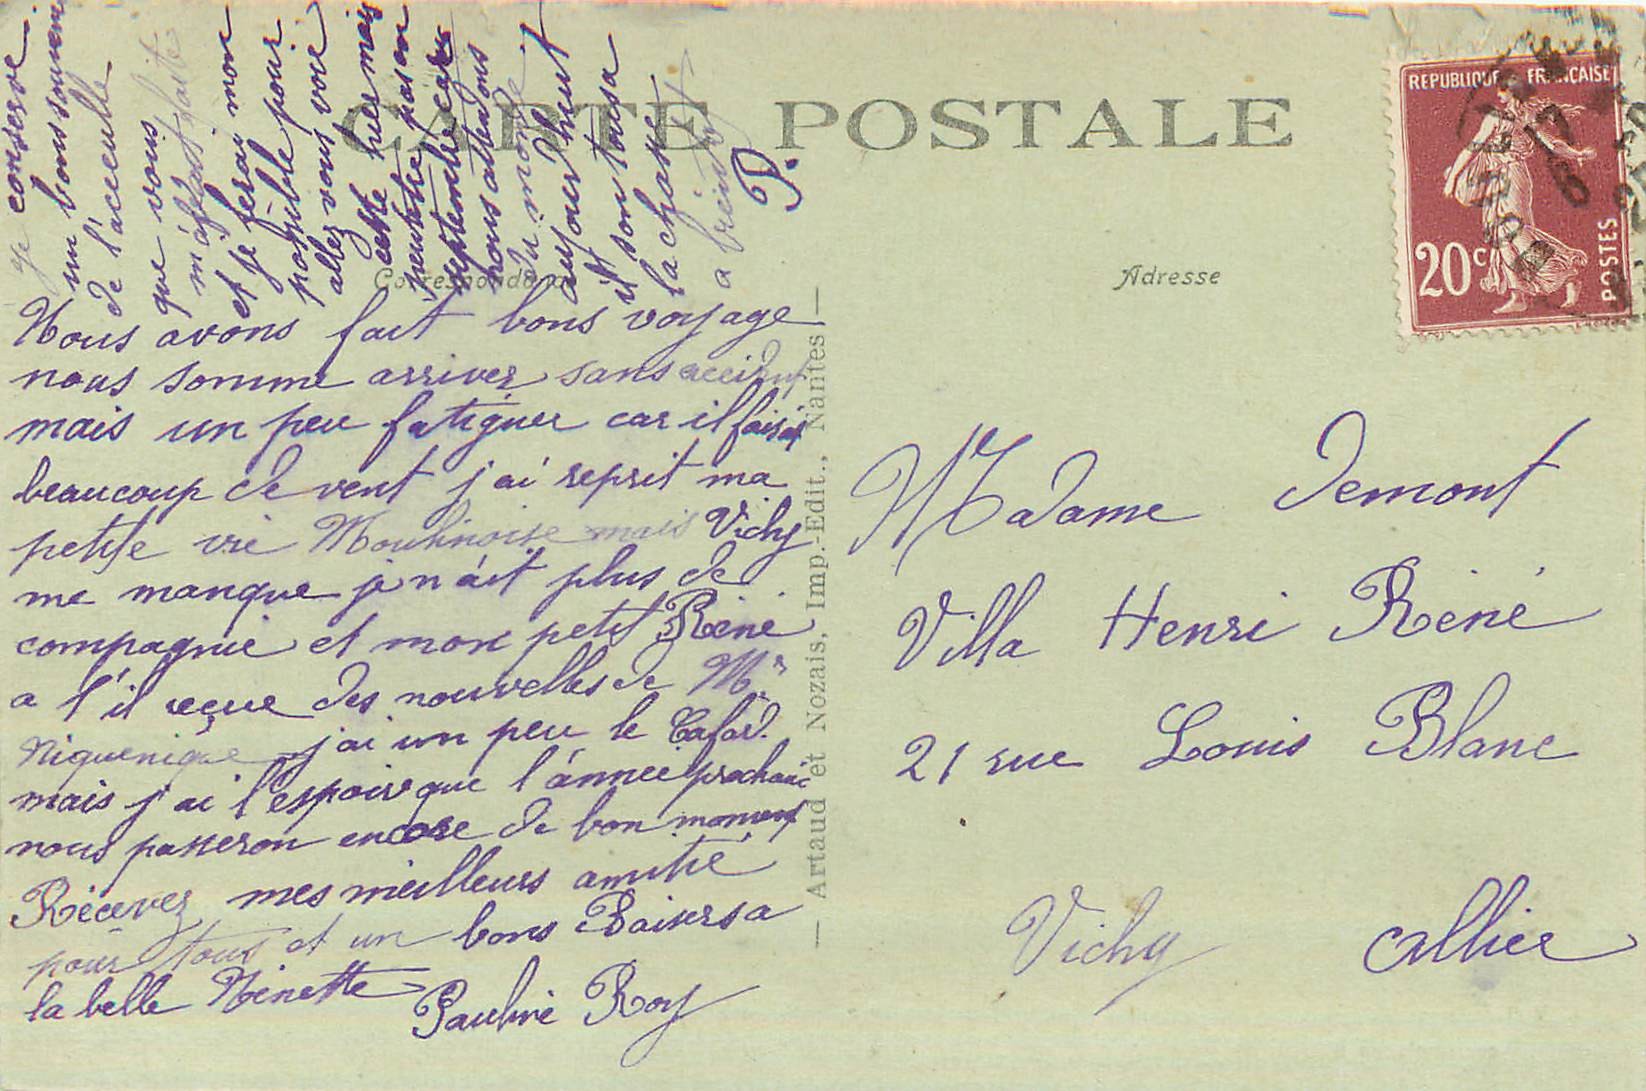 CARTE POSTALE
Correspondance
Adresse
REPUBLIQUE FRANCAISE
20c
POSTES
Nous avons fait bons voyage
nous somme arriver sans accident
mais un peu fatiguer car il faisait
beaucoup de vent j'ai reprit ma
petite vie Moulinoise mais Vichy
me manque je n'ait plus de
compagnie et mon petit Réné
a t'il reçue des nouvelles de Mr
Niguenique j'ai un peu le Cafard.
mais j'ai l'espoire que l'année prochaine
nous passeron encore de bon moment
Récevez mes meilleurs amitié
pour tous et un bons Baisers a
la belle Ninette
Pauline Roy
je conserve
un bons souvenir
de l'acceuille
que vous
m'avez faite
et je ferai mon
possible pour
allez vous voir
cette hier mais
peutetre pas en
septembre car
nous attendons
du monde
aujourd'heut
ils sont tous a
la chasse
a bientôt
P.
— Artaud et Nozais, Imp.-Edit., Nantes —
Madame Demont
Villa Henri Réné
21 rue Louis Blanc
Vichy Allier